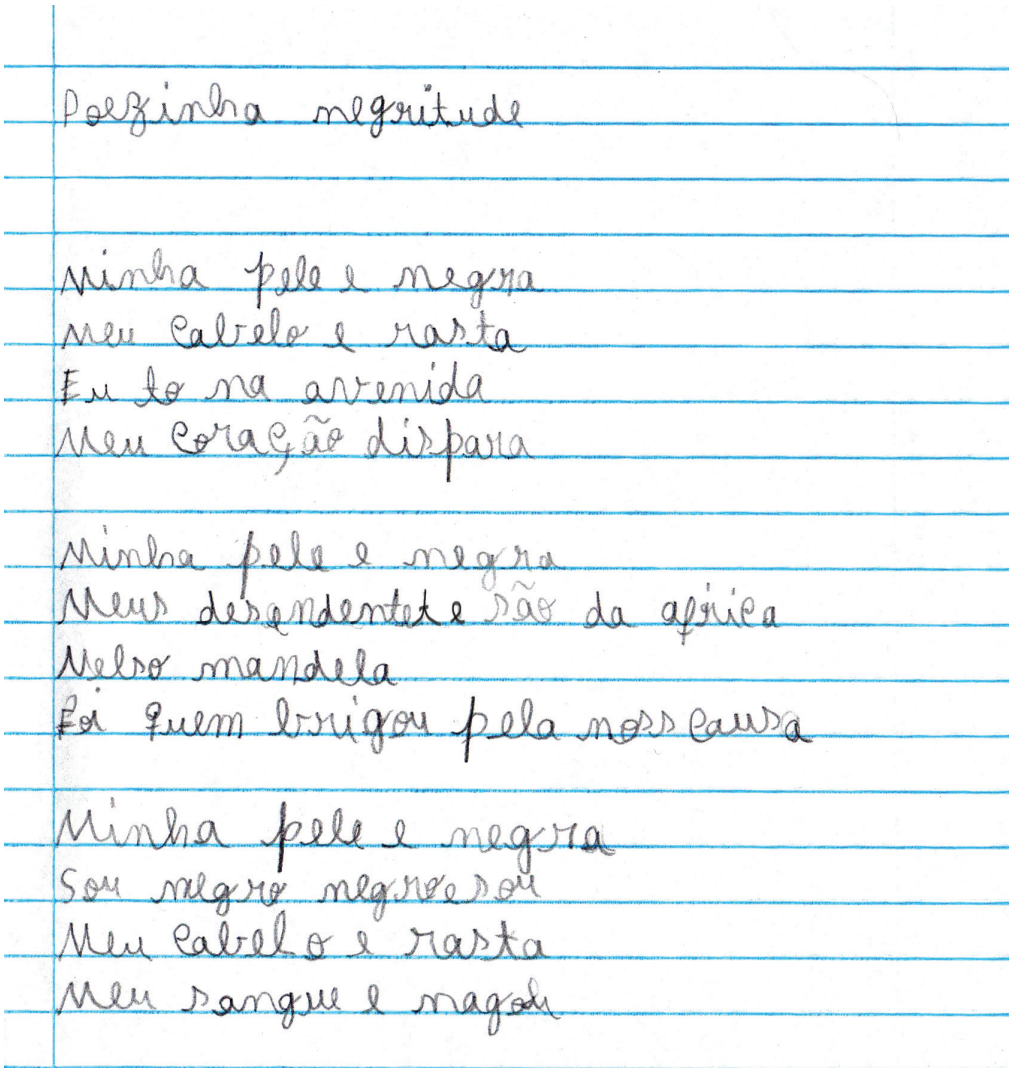 Poezinha negritude
Minha pele e negra
Meu cabelo e rasta
Eu to na avenida
Meu coração dispara
Minha pele e negra
Meus desendentete são da africa
Nelso mandela
Foi quem brigou pela noss causa
Minha pele e negra
Sou negro negroesou
Meu cabelo e rasta
Meu sangue e nagou